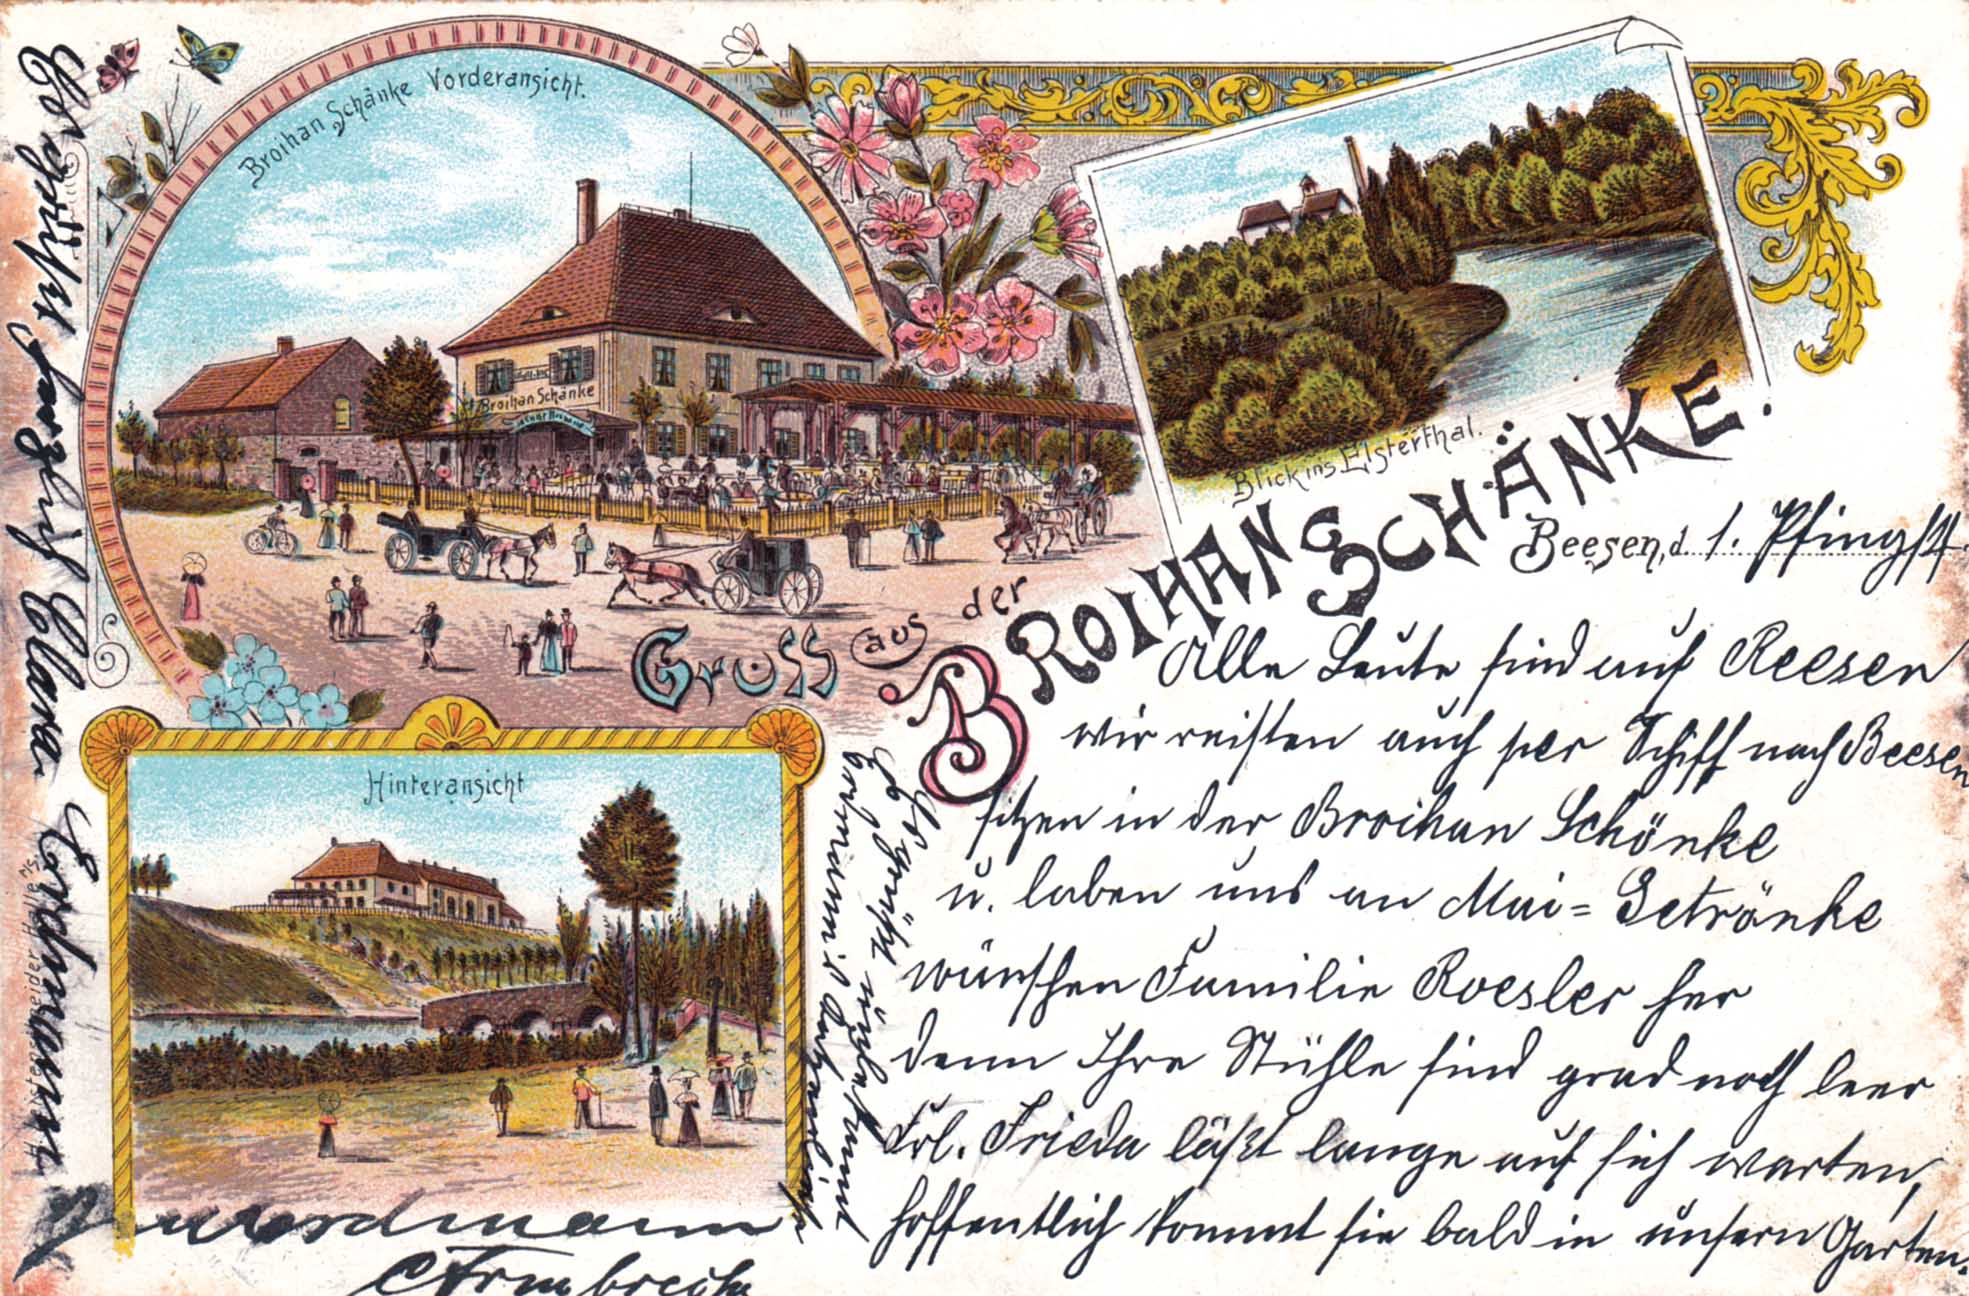 Broihan Schänke Vorderansicht.
Broihan Schänke
Blick ins Elsterthal.
Gruss aus der
BROIHANSCHÄNKE.
Beesen, d. 1. Pfingstt.
Alle Leute sind auf Reesen
wir reisten auch per Schiff nach Beesen
sitzen in der Broihan Schönke
u. laben uns an Mai=Getränke
wünschen Familie Roesler her
denn Ihre Stühle sind grad noch leer
Frl. Frieda läßt lange auf sich warten,
hoffentlich kommt sie bald in unsern Garten.
Hinteransicht
Es grüßt
Erdmann
Es grüßt herzlich Clara Erdmann
Erdmann